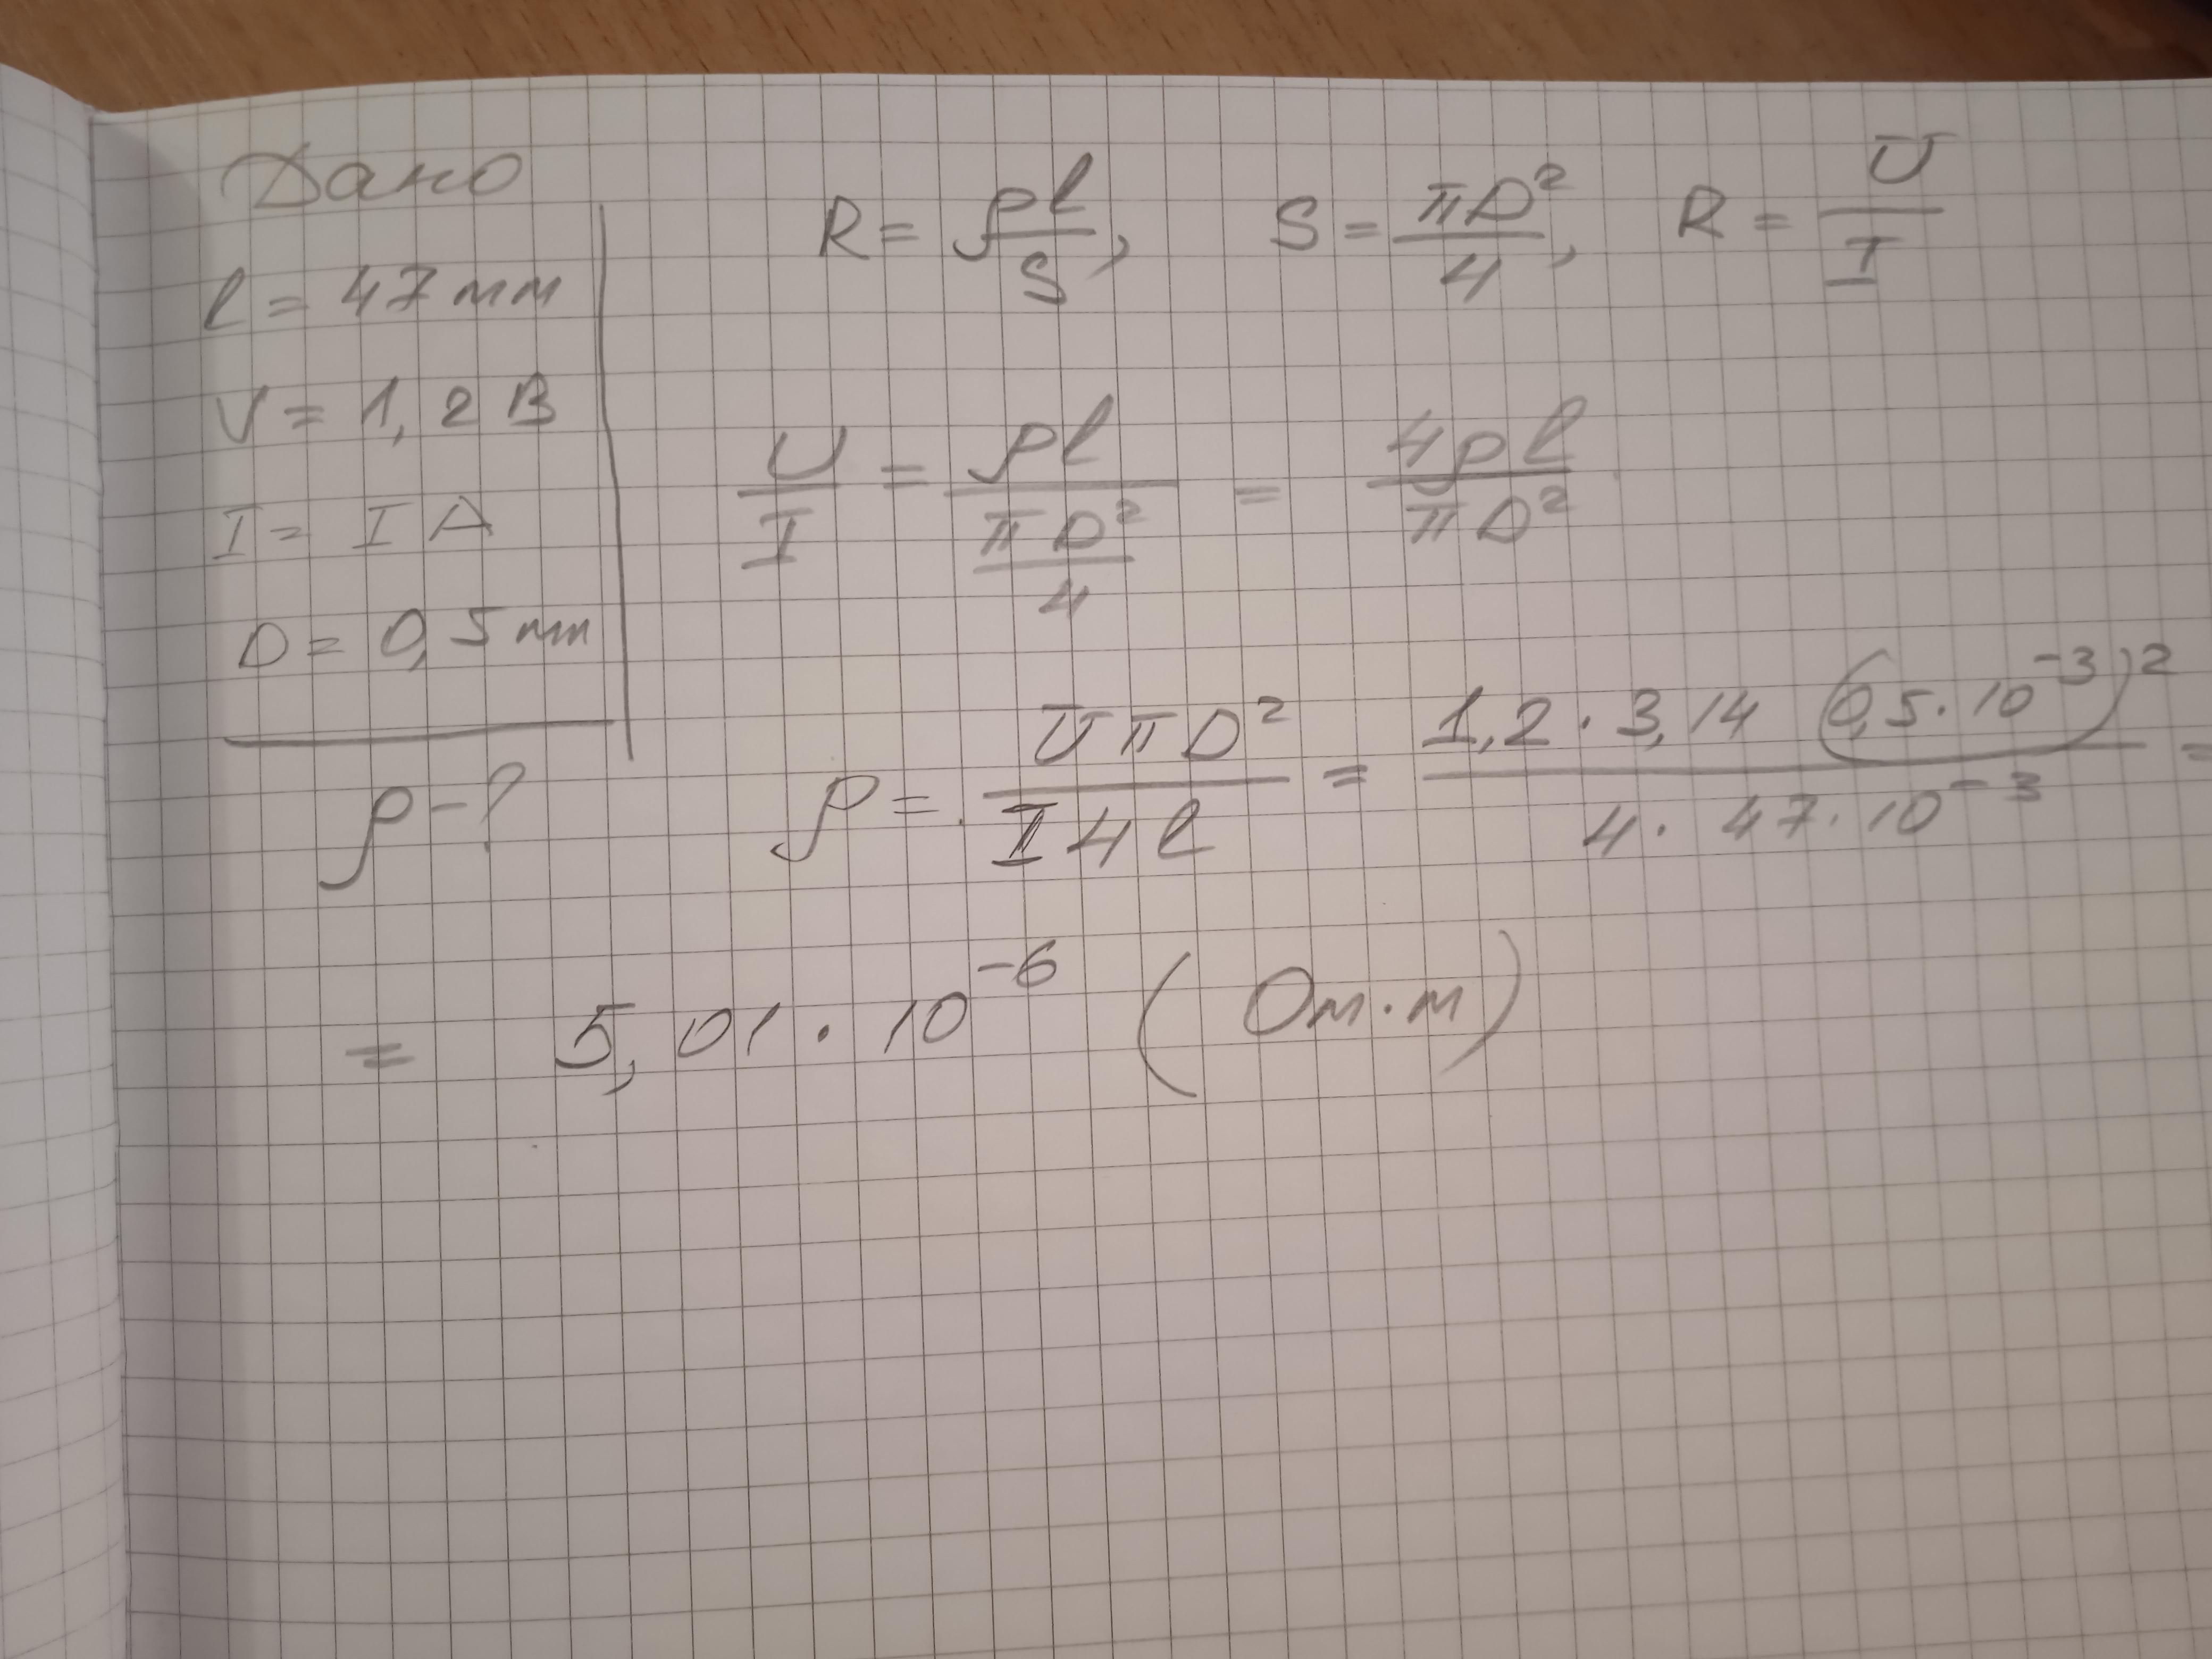 Дано
l = 47 мм
V = 1,2 В
I = I А
D = 0,5 мм
ρ - ?
R = ρl/S, S = πD²/4, R = U/I
U/I = ρl/(πD²/4) = 4ρl/πD²
ρ = UπD²/I4l = 1,2 · 3,14 (0,5 · 10⁻³)²/4 · 47 · 10⁻³ =
= 5,01 · 10⁻⁶ (Ом · м)